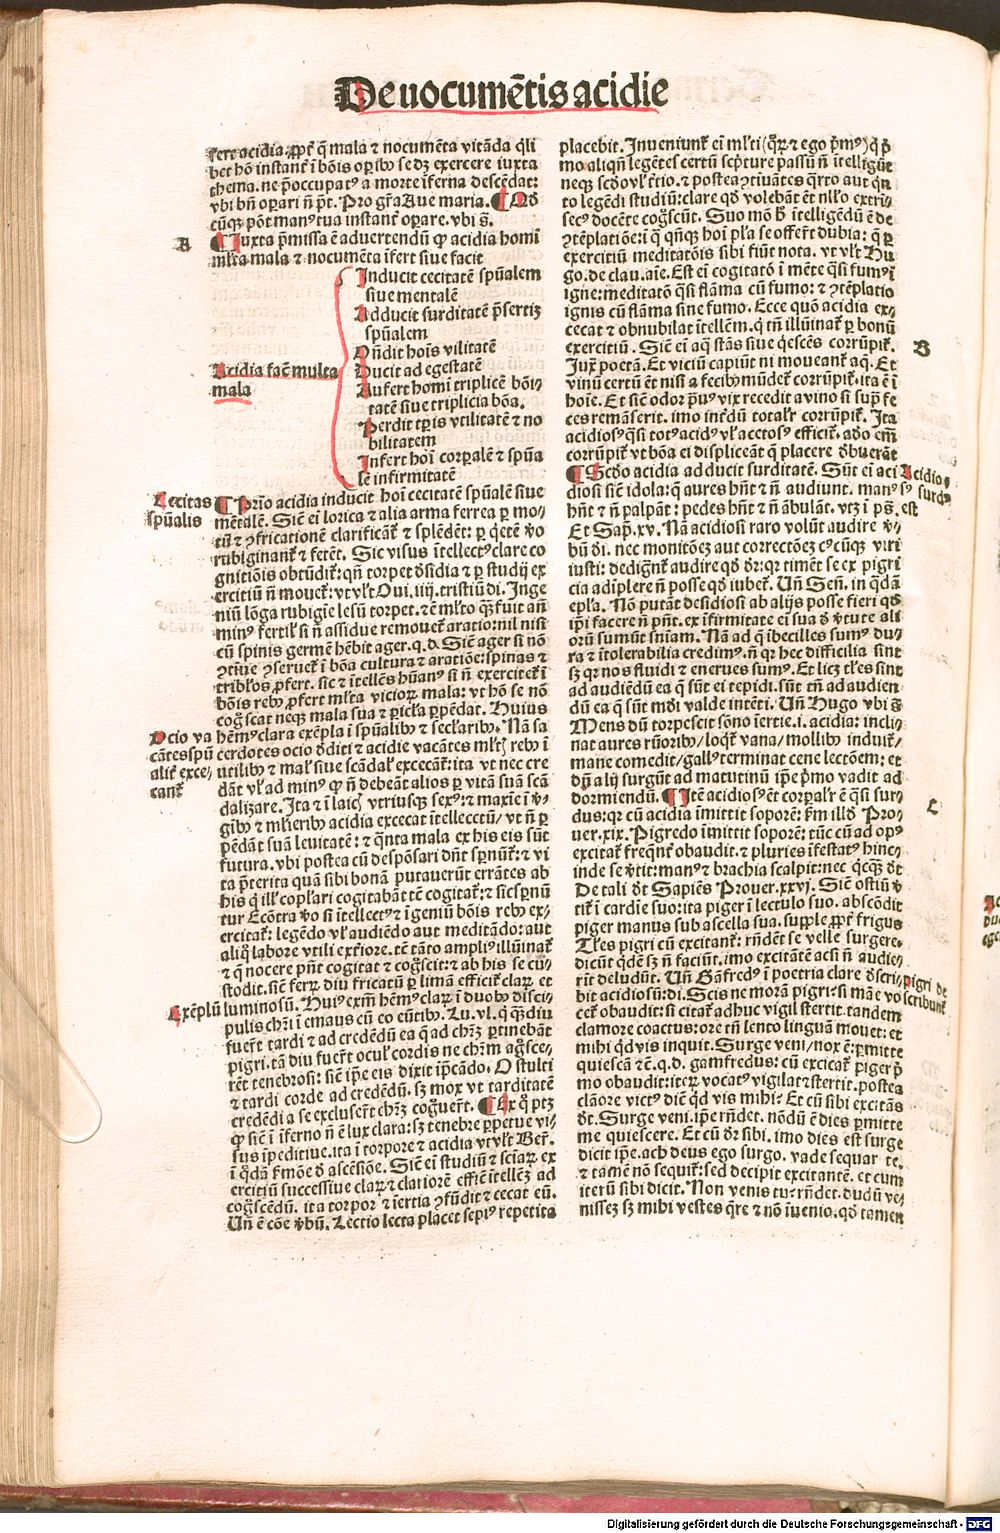 De uocumētis acidie
fert acidia. ꝓpt̄ q̄ mala ⁊ nocumēta vitāda q̄li
bet hō instant̄ ī bōis oꝑibꝰ se dꝫ exercere iuxta
thema. ne p̄occupatꝰ a morte īferna descēdat:
vbi bn̄ oꝑari n̄ pt̄. Pro gr̄a Aue maria. ¶ Qd
cūqꝫ pōt manꝰ tua instant̄ oꝑare. vbi s̄.
A
¶ Iuxta p̄missa ē aduertendū ꝙ acidia homī
ml̄ta mala ⁊ nocumēta īfert siue facit
Acidia fac̄ multa
mala
Inducit cecitatē spūalem
siue mentalē
Adducit surditatē p̄sertiꝫ
spūalem
Oñdit hoīs vilitatē
Ducit ad egestatē
Aufert homī triplicē bōi-
tatē siue triplicia bōa.
Perdit tꝑis vtilitatē ⁊ no
bilitatem
Infert hoī corꝑalē ⁊ spūa
lē infirmitatē
Cecitas
spūalis
¶ Prīo acidia inducit hoī cecitatē spūalē siue
mētalē. Sic̄ ei lorica ⁊ alia arma ferrea ꝑ mo-
tū ⁊ ꝯfricationē clarificāt̄ ⁊ splēdēt: ꝑ q̄etē v̄o
rubiginant̄ ⁊ fetēt. Sic visus ītellectꝰ clare co
gnitiōis obtūdit̄: qn̄ torpet d̄sidia ⁊ ꝑ studij ex
ercitiū n̄ mouet̄: vt vlt̄ Oui. iiij. tristiū di. Inge
niū lōga rubigīe lesū torpet. ⁊ē ml̄to q̄ꝫ fuit an̄
minꝰ fertil̄ si n̄ assidue remouet̄ aratio: nil nisi
cū spinis germē hēbit ager. q.d. Sic̄ ager si nō
ꝯtīue ꝯseruet̄ ī bōa cultura ⁊ aratiōe: spinas ⁊
tribl̄os ꝓfert. sic ⁊ ītellēs hūanꝰ si n̄ exercitet̄ ī
bōis rebꝰ ꝓfert ml̄ta vicioꝝ mala: vt hō se nō
coḡscat neqꝫ mala sua ⁊ ꝑicl̄a ꝑpēdat. Huius
Ocio va
cātes spū
alit̄ exce-
cant̄
hēmꝰ clara exēpla ī spūalibꝰ ⁊ secl̄aribꝰ. Nā sa
cerdotes ocio d̄diti ⁊ acidie vacātes ml̄tꝭ rebꝰ ī
utilibꝰ ⁊ mal̄ siue scādal̄ excecāt̄: ita vt nec cre
dāt vl̄ ad minꝰ ꝙ n̄ debeāt alios ꝑ vitā suā scā
dalizare. Ita ⁊ ī laicꝭ vtriusqꝫ sexꝰ: ⁊ maxīe ī v̄-
gībꝰ ⁊ ml̄ieribꝰ acidia excecat ītellecctū / vt n̄ ꝑ
pēdāt suā leuitatē: ⁊ q̄nta mala ex his eis sūt
futura. vbi postea cū despōsari dn̄t spernūt̄: ⁊ vi
ta p̄terita quā sibi bonā putauerūt errātes ab
his q̄ ill̄ copl̄ari cogitabāt tē cogitat̄: ⁊ sic spernū
tur Ecōtra v̄o si ītellectꝰ ⁊ īgeniū bōis rebꝰ ex-
ercitat̄: legēdo vl̄ audiēdo aut meditādo: aut
aliq̄ labore vtili exēriore. tē tāto ampliꝰ illūinat̄
⁊ q̄ nocere pn̄t cogitat ⁊ coḡscit: ⁊ ab his se cu-
stodit. sic̄ ferꝝ diu fricatū ꝑ limā efficit̄ claꝝ et
Exēplū
luminosū. Huiꝰ exm̄ hēmꝰ claꝝ ī duobꝰ disci-
pulis chr̄i ī emaus cū eo eūtibꝰ. Lu. vl. q̄ q̄ꝫdiu
fuer̄t tardi ⁊ ad credēdū ea q̄ ad chr̄ꝫ ꝑtinebāt
pigri. tā diu fuer̄t ocul̄ cordis ne chr̄m aḡsce-
rēt tenebrosi: sic̄ ip̄e eis dixit īp̄cādo. O stulti
⁊ tardi corde ad credēdū. sꝫ mox vt tarditatē
credēdi a se excluser̄t chr̄ꝫ coḡuer̄t. ¶ Ex q̄ ptꝫ
ꝙ sic̄ ī īferno n̄ ē lux clara: sꝫ tenebre ꝑpetue vi-
sus īpeditiue. ita ī torpore ⁊ acidia vt vlt̄ Ber̄.
ī q̄dā ẜmōe d̄ ascēsiōe. Sic̄ ei studiū ⁊ sciaꝝ ex
ercitiū successiue claꝝ ⁊ clariorē efficit ītellēꝫ ad
coḡscēdū. ita torpor ⁊ īertia ꝯfūdit ⁊ cecat eū.
Vn̄ ē cōe v̄bū. Lectio lecta placet sepiꝰ repetita
placebit. Inueniunt̄ ei ml̄ti (q̄ꝝ ⁊ ego p̄mꝰ) q̄ p̄
mo aliqn̄ legētes certū sc̄pture passū n̄ ītelligūt
neqꝫ sc̄do vl̄ t̄tio. ⁊ postea ꝯtinuātes q̄rto aut qn̄
to legēdi studiū: clare qd̄ volebāt ēt nll̄o extri-
secꝰ docēte coḡscūt. Suo mō h̄ ītelligēdū ē de
ꝯtēplatiōe: ī q̄ qn̄qꝫ hoī pl̄a se offert̄ dubia: q̄ ꝑ
exercitiū meditatōis sibi fiūt nota. vt vlt̄ Hu
go. de clau. aīe. Est ei cogitatō ī mēte q̄si fumꝰ ī
igne: meditatō q̄si flāma cū fumo: ⁊ ꝯtēplatio
ignis cū flāma sine fumo. Ecce quō acidia ex-
cecat ⁊ obnubilat ītellēm. q̄ tn̄ illūinat̄ ꝑ bonū
B
exercitiū. Sic̄ ei aq̄ stās siue q̄escēs corrūpit̄.
Iuꝝ poetā. Et viciū capiūt ni moueant̄ aq̄. Et
vinū certū ēt nisi a fecibꝰ mūdet̄ corrūpit̄. ita ē ī
hoīe. Et sic̄ odor p̄uꝰ vix recedit a vino si suꝑ fe
ces remāserit. imo inēdū total̄r corrūpit̄. Ita
acidiosꝰ q̄si totꝰ acidꝰ vl̄ acetosꝰ efficit̄. adō em̄
corrūpit̄ vt bōa ei displiceāt q̄ placere d̄buerāt
¶ Sc̄do acidia adducit surditatē. Sūt ei aci
Acidio-
sꝰ surdꝰ
est
diosi sic̄ idola: q̄ aures hn̄t ⁊ n̄ audiunt. manꝰ
hn̄t ⁊ n̄ palpāt: pedes hn̄t ⁊ n̄ ābulāt. vtꝫ ī ps̄.
Et Sap̄. xv. Nā acidiosi raro volūt audire v̄-
bū d̄i. nec monitōeꝫ aut correctōeꝫ cꝰcūqꝫ viri
iusti: dedignēt̄ audire qd̄ d̄r: qr timēt se ex pigri
cia adīplere n̄ posse qd̄ iubet̄. Vn̄ Sen̄. in q̄dā
epl̄a. Nō putāt desidiosi ab alijs posse fieri qd̄
ip̄i facere n̄ pn̄t. ex īfirmitate ei sua d̄ v̄tute ali
orū sumūt sn̄iam. Nā ad q̄ ībecilles sumꝰ du-
ra ⁊ ītolerabilia credimꝰ. n̄ qr hec difficilia sint
sꝫ qr nos fluidi ⁊ enerues sumꝰ. Et licꝫ tl̄es sint
ad audiēdū ea q̄ sūt ei tepidi. sūt tn̄ ad audien
dū ea q̄ sūt mūdi valde intēti. Vn̄ Hugo vbi s̄
Mens dū torpescit sōno īertie. i. acidia: incli-
nat aures rūoribꝰ / loqt̄ vana / mollibꝰ induit̄ /
mane comedit / gallꝰ terminat cene lectōem: et
dū alij surgūt ad matutinū ip̄e p̄mo vadit ad
dormiendū. ¶ Itē acidiosꝰ ēt corꝑal̄r ē q̄si sur-
C
dus: qr cū acidia īmittit soporē: ẜm illd̄ Pro-
uer. xix. Pigredo īmittit soporē: tūc cū ad opꝰ
excitat̄ freq̄nt̄ obaudit. ⁊ pluries īfestatꝰ hinc
inde se v̄tit: manꝰ ⁊ brachia scalpit: nec q̄cqꝫ d̄t
De tali d̄t Sapiēs Prouer. xxvj. Sic̄ ostiū v̄
tit̄ ī cardīe suo: ita piger ī lectulo suo. abscōdit
piger manus sub ascella sua. supple ꝓpt̄ frigus
Tl̄es pigri cū excitant̄: rn̄dēt se velle surgere.
dicūt q̄dē sꝫ n̄ faciūt. imo excitātē acsi n̄ audie-
rīt deludūt. Vn̄ Gāfredꝰ ī poetria clare d̄scri-
pigri de
scribunt̄
bit acidiosū: di. Scis ne morā pigri: si māe vo
cet̄ obaudit: si citat̄ adhuc vigil stertit. tandem
clamore coactus: ore tn̄ lento linguā mouet: et
mihi qd̄ vis inquit. Surge veni / nox ē: ꝑmitte
quiescā ⁊c̄. q.d. gamfredus: cū excicat̄ piger p̄
mo obaudit: iteꝝ vocatꝰ vigilat ⁊ stertit. postea
clāore victꝰ dic̄ qd̄ vis mihi? Et cū sibi excitās
d̄t. Surge veni. ip̄e rn̄det. nōdū ē dies ꝑmitte
me quiescere. Et cū d̄r sibi. imo dies est surge
dicit ip̄e. ach deus ego surgo. vade sequar te.
⁊ tamē nō sequit̄: sed decipit excitantē. et cum
iterū sibi dicit. Non venis tu? rn̄det. dudū ve-
nissez sꝫ mihi vestes q̄re ⁊ nō īuenio. qd̄ tamen
Digitalisierung gefördert durch die Deutsche Forschungsgemeinschaft - DFG